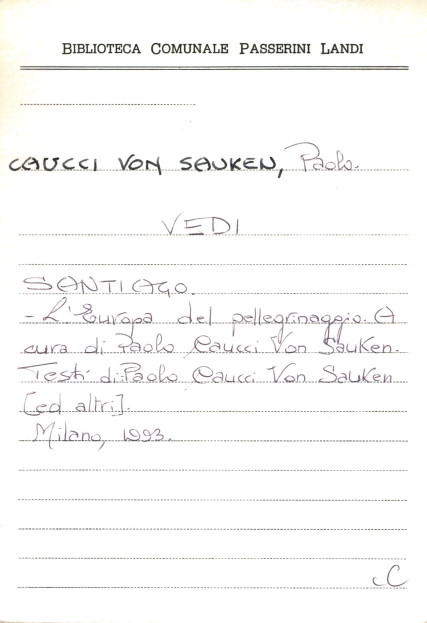 BIBLIOTECA COMUNALE PASSERINI LANDI
CAUCCI VON SAUKEN, Paolo.
VEDI
SANTIAGO.
- L'Europa del pellegrinaggio. A
cura di Paolo Caucci Von Sauken.
Testi di: Paolo Caucci Von Sauken
[ed altri].
Milano, 1993.
C